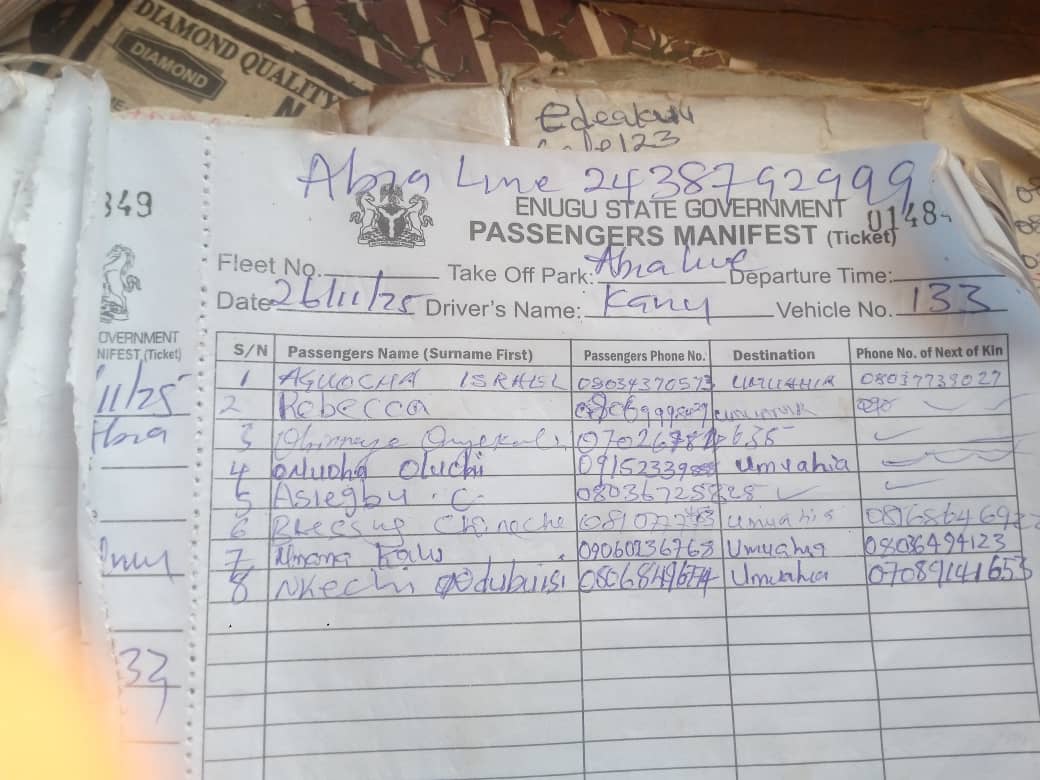 DIAMOND QUALITY
DIAMOND
Edeakun
123
Abia Line 2438792999
349
ENUGU STATE GOVERNMENT
0148
PASSENGERS MANIFEST (Ticket)
Fleet No. Take Off Park: Abia Line Departure Time:
Date 26/11/25 Driver's Name: Kanu Vehicle No. 133
OVERNMENT
NIFEST (Ticket)
S/N Passengers Name (Surname First) Passengers Phone No. Destination Phone No. of Next of Kin
1 AGUOCHA ISRAEL 08034370573 UMUAHIA 08037739027
11/25
2 Rebecca
Abia
3 Obinnaya
4 Onuoha Oluchi Umuahia
5 Asiegbu C.
6 Blessing Chineche Umuahia
7 Umana Kalu 09060236768 Umuahia 08086494123
8 Nkechi Odubuisi Umuahia 07089141653